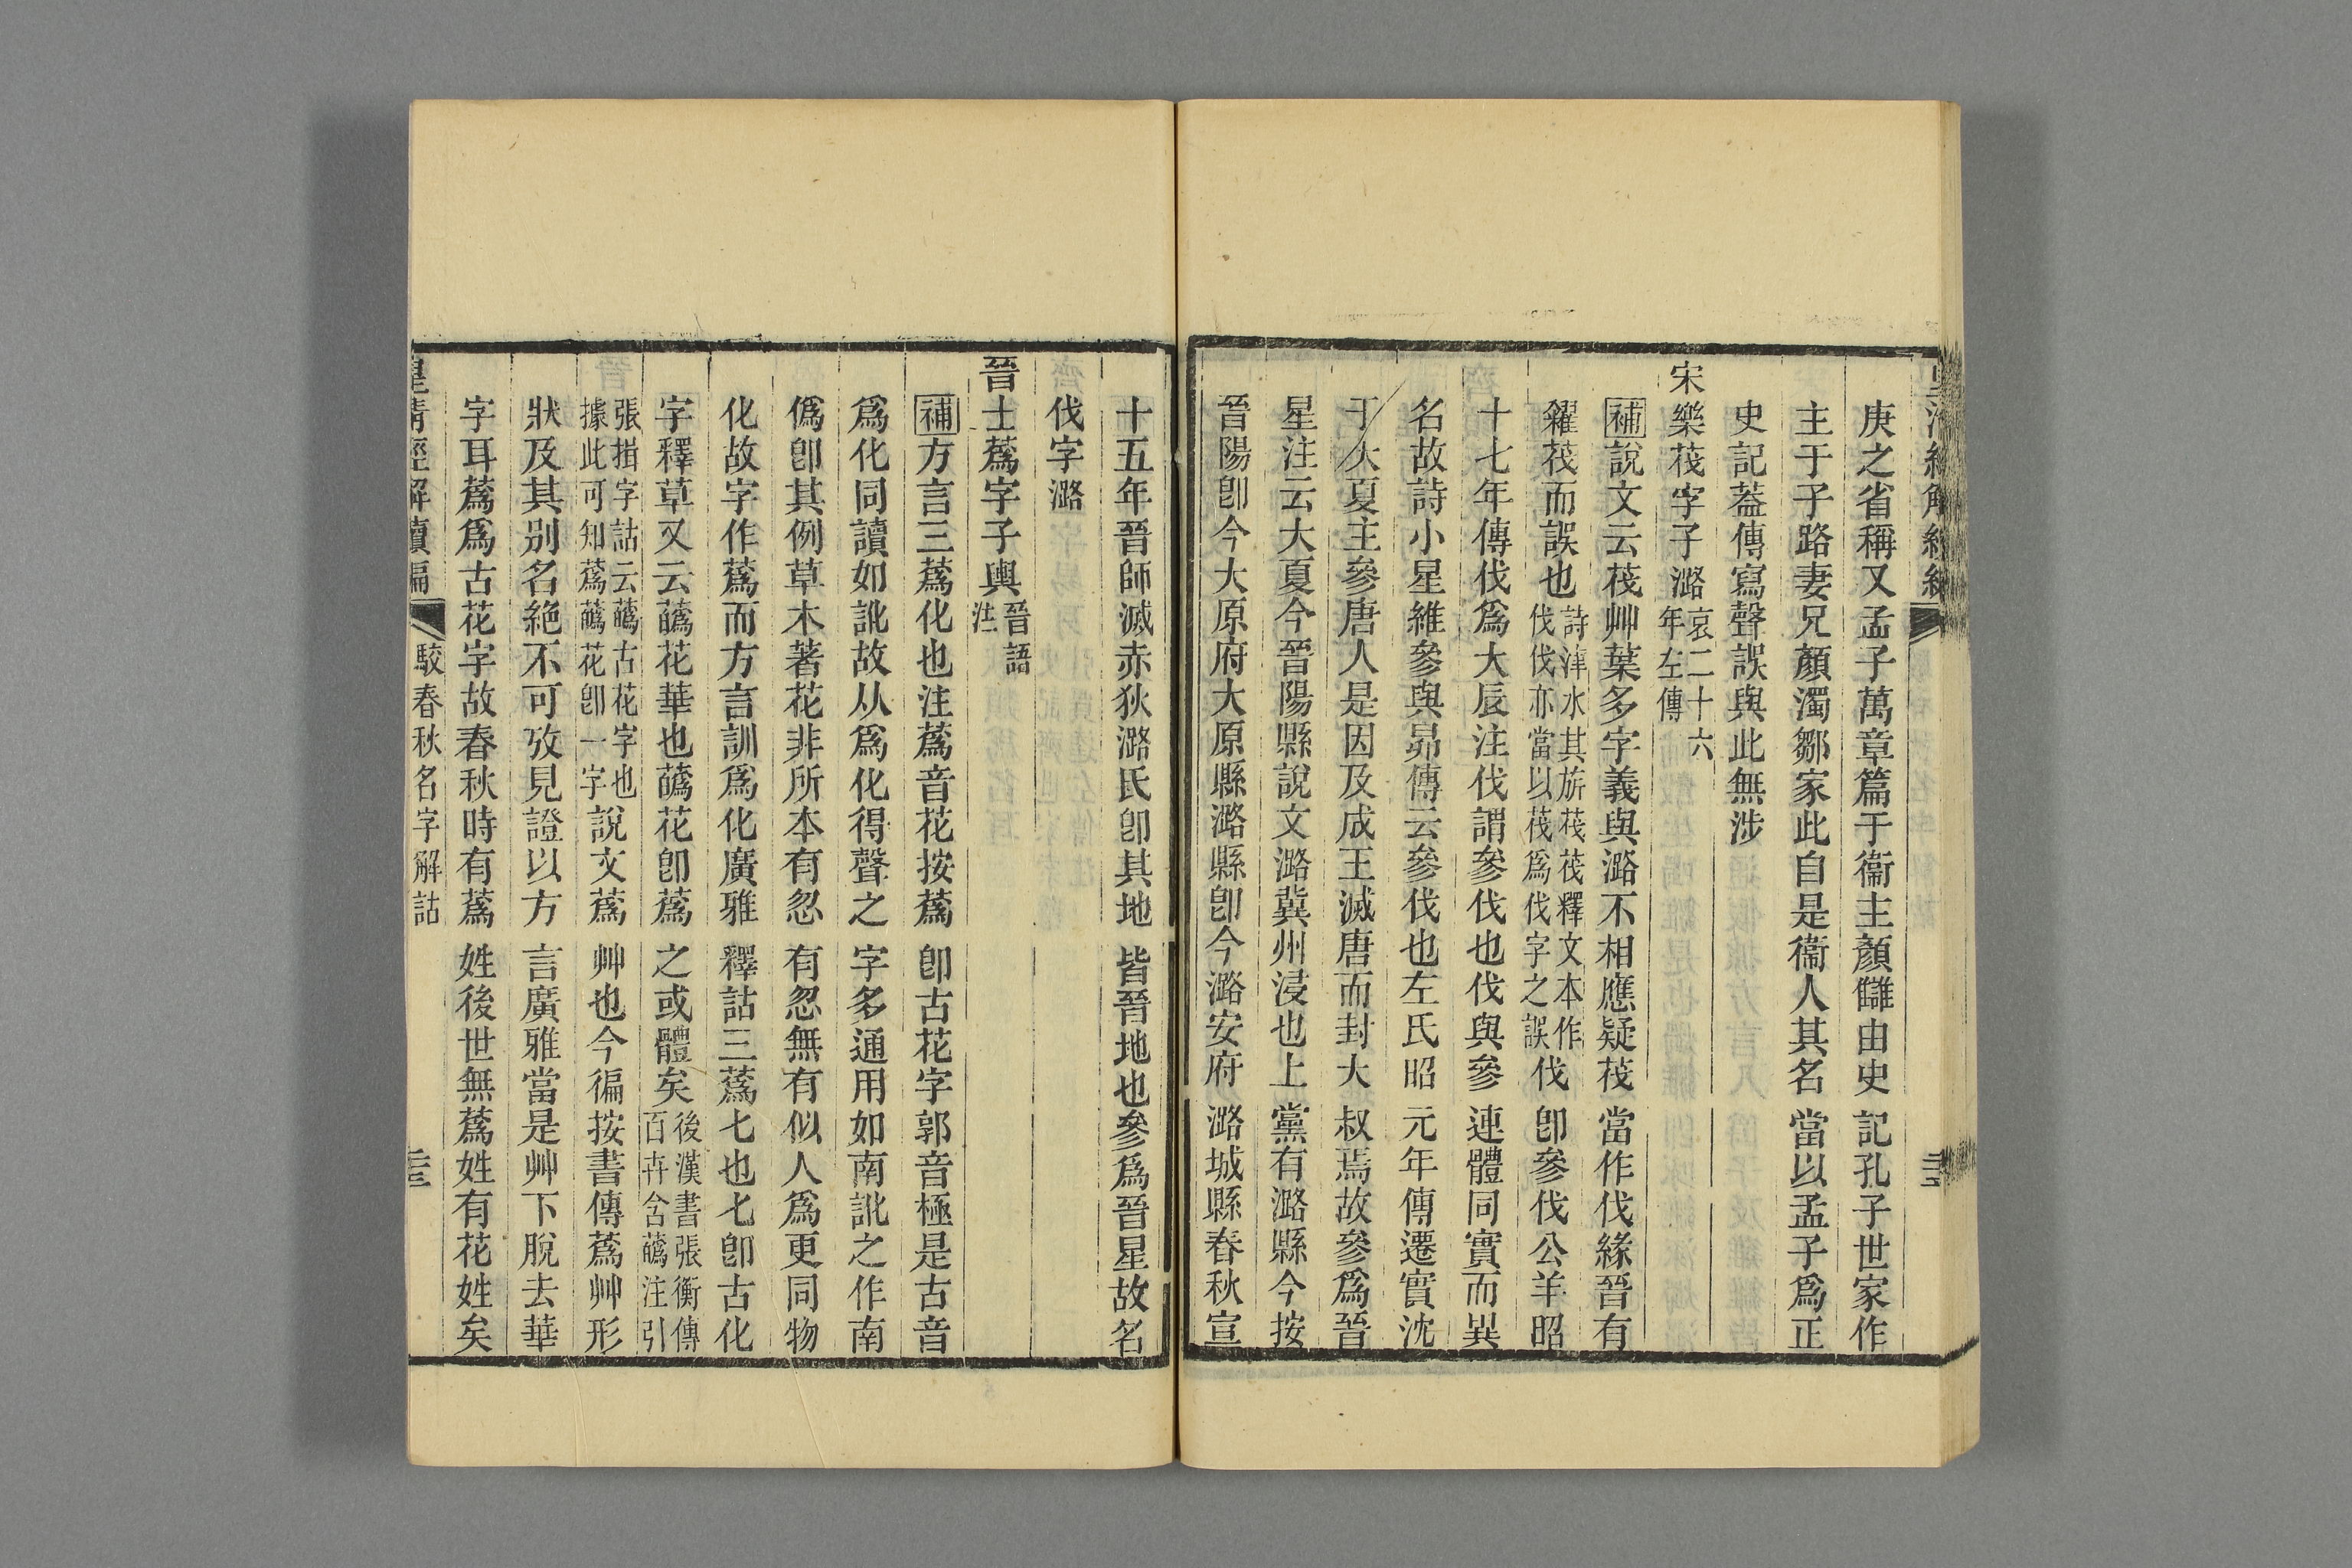 庚之省稱又孟子萬章篇于衞主顏讎由史記孔子世家作
主于子路妻兄顏濁鄒家此自是衞人其名當以孟子爲正
史記葢傳寫聲誤與此無涉
宋樂茷字子潞哀二十六年左傳
補說文云茷艸葉多字義與潞不相應疑茷當作伐緣晉有
糴茷而誤也詩泮水其旂茷茷釋文本作伐伐亦當以茷爲伐字之誤伐卽參伐公羊昭
十七年傳伐爲大辰注伐謂參伐也伐與參連體同實而異
名故詩小星維參與昴傳云參伐也左氏昭元年傳遷實沈
于大夏主參唐人是因及成王滅唐而封大叔焉故參爲晉
星注云大夏今晉陽縣說文潞冀州浸也上黨有潞縣今按
晉陽卽今大原府大原縣潞縣卽今潞安府潞城縣春秋宣
十五年晉師滅赤狄潞氏卽其地皆晉地也參爲晉星故名
伐字潞
晉士蔿字子輿晉語注
補方言三蔿化也注蔿音花按蔿卽古花字郭音極是古音
爲化同讀如訛故从爲化得聲之字多通用如南訛之作南
僞卽其例草木著花非所本有忽有忽無有似人爲更同物
化故字作蔿而方言訓爲化廣雅釋詁三蔿七也七卽古化
字釋草又云蘤花華也蘤花卽蔿之或體矣後漢書張衡傳百卉含蘤注引
張揖字詁云蘤古花字也據此可知蔿蘤花卽一字說文蔿艸也今徧按書傳蔿艸形
狀及其別名絶不可攷見證以方言廣雅當是艸下脫去華
字耳蔿爲古花字故春秋時有蔿姓後世無蔿姓有花姓矣
皇清經解續編　駮春秋名字解詁　三三